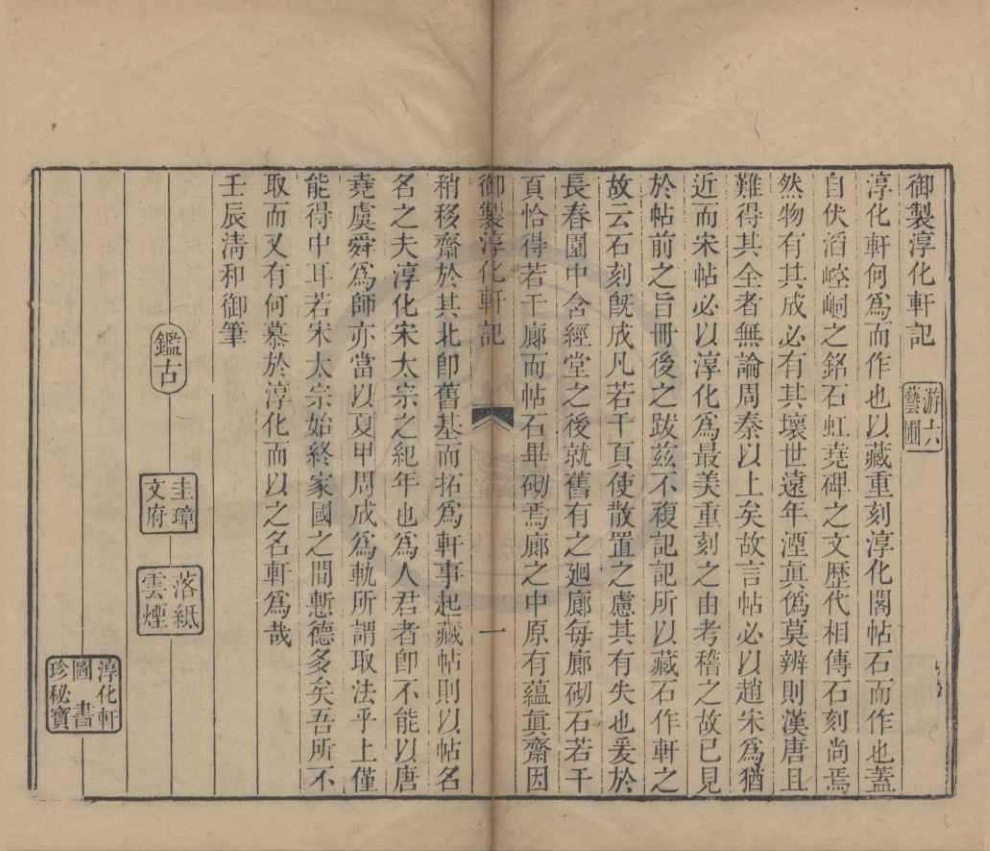 御製淳化軒記
游六
藝圃
淳化軒何爲而作也以藏重刻淳化閣帖石而作也蓋
自伏滔崆峒之銘石虹堯碑之文歴代相傳石刻尚焉
然物有其成必有其壞世遠年湮眞僞莫辨則漢唐且
難得其全者無論周秦以上矣故言帖必以趙宋爲猶
近而宋帖必以淳化爲最美重刻之由考稽之故已見
於帖前之旨冊後之跋茲不複記記所以藏石作軒之
故云石刻旣成凡若干頁使散置之慮其有失也爰於
長春園中含經堂之後就舊有之廻廊每廊砌石若干
頁恰得若干廊而帖石畢砌焉廊之中原有蘊眞齋因
御製淳化軒記
一
稍移齋於其北卽舊基而拓爲軒事起藏帖則以帖名
名之夫淳化宋太宗之紀年也爲人君者卽不能以唐
堯虞舜爲師亦當以夏甲周成爲軌所謂取法乎上僅
能得中耳若宋太宗始終家國之間慙德多矣吾所不
取而又有何慕於淳化而以之名軒爲哉
壬辰淸和御筆
鑑古
圭璋
文府
落紙
雲煙
淳化軒
圖書
珍秘寶